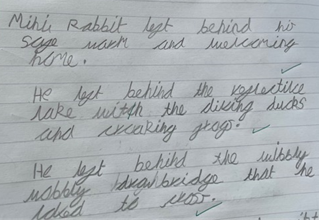 Mini Rabbit left behind his
safe warm and welcoming
home.
He left behind the reflective
lake with the diving ducks
and croaking frogs.
He left behind the wibbly
wobbly drawbridge that he
loved to cross.